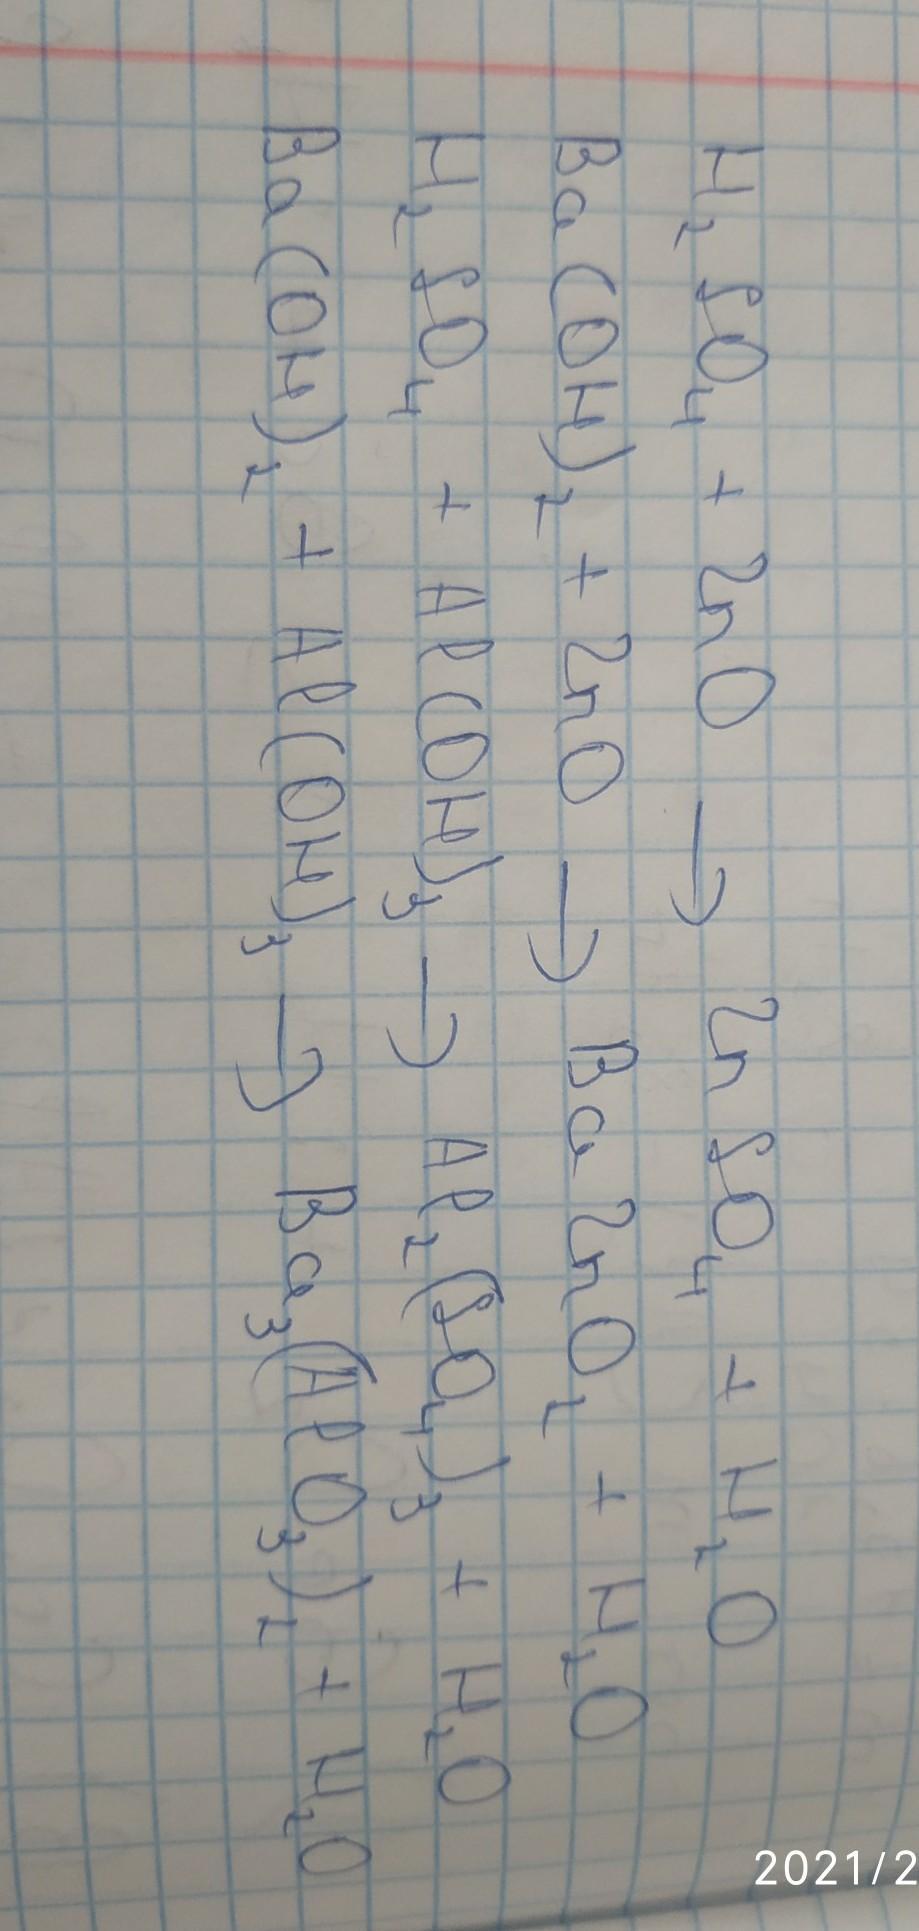 H₂SO₄ + ZnO → ZnSO₄ + H₂O
Ba(OH)₂ + ZnO → BaZnO₂ + H₂O
H₂SO₄ + Al(OH)₃ → Al₂(SO₄)₃ + H₂O
Ba(OH)₂ + Al(OH)₃ → Ba₃(AlO₃)₂ + H₂O
2021/2